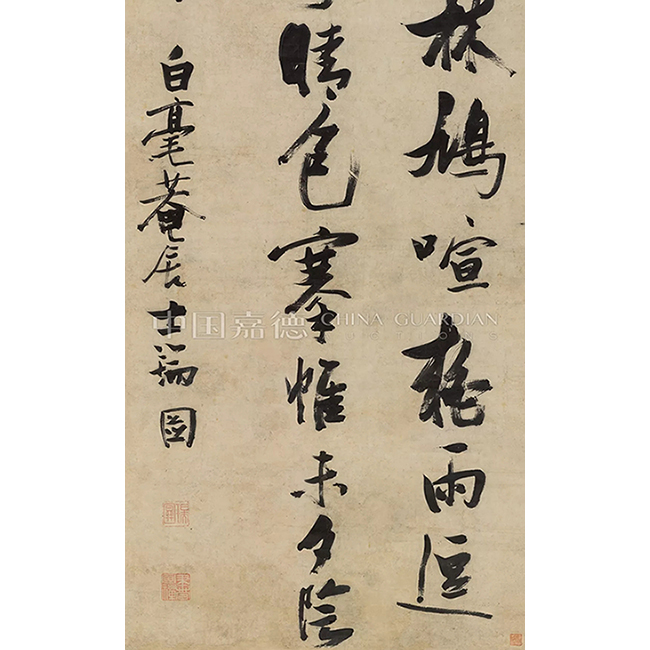 林鳩喧花雨逗
晴色搴帷未夕陰
白毫菴居士瑞圖
中国嘉德 CHINA GUARDIAN